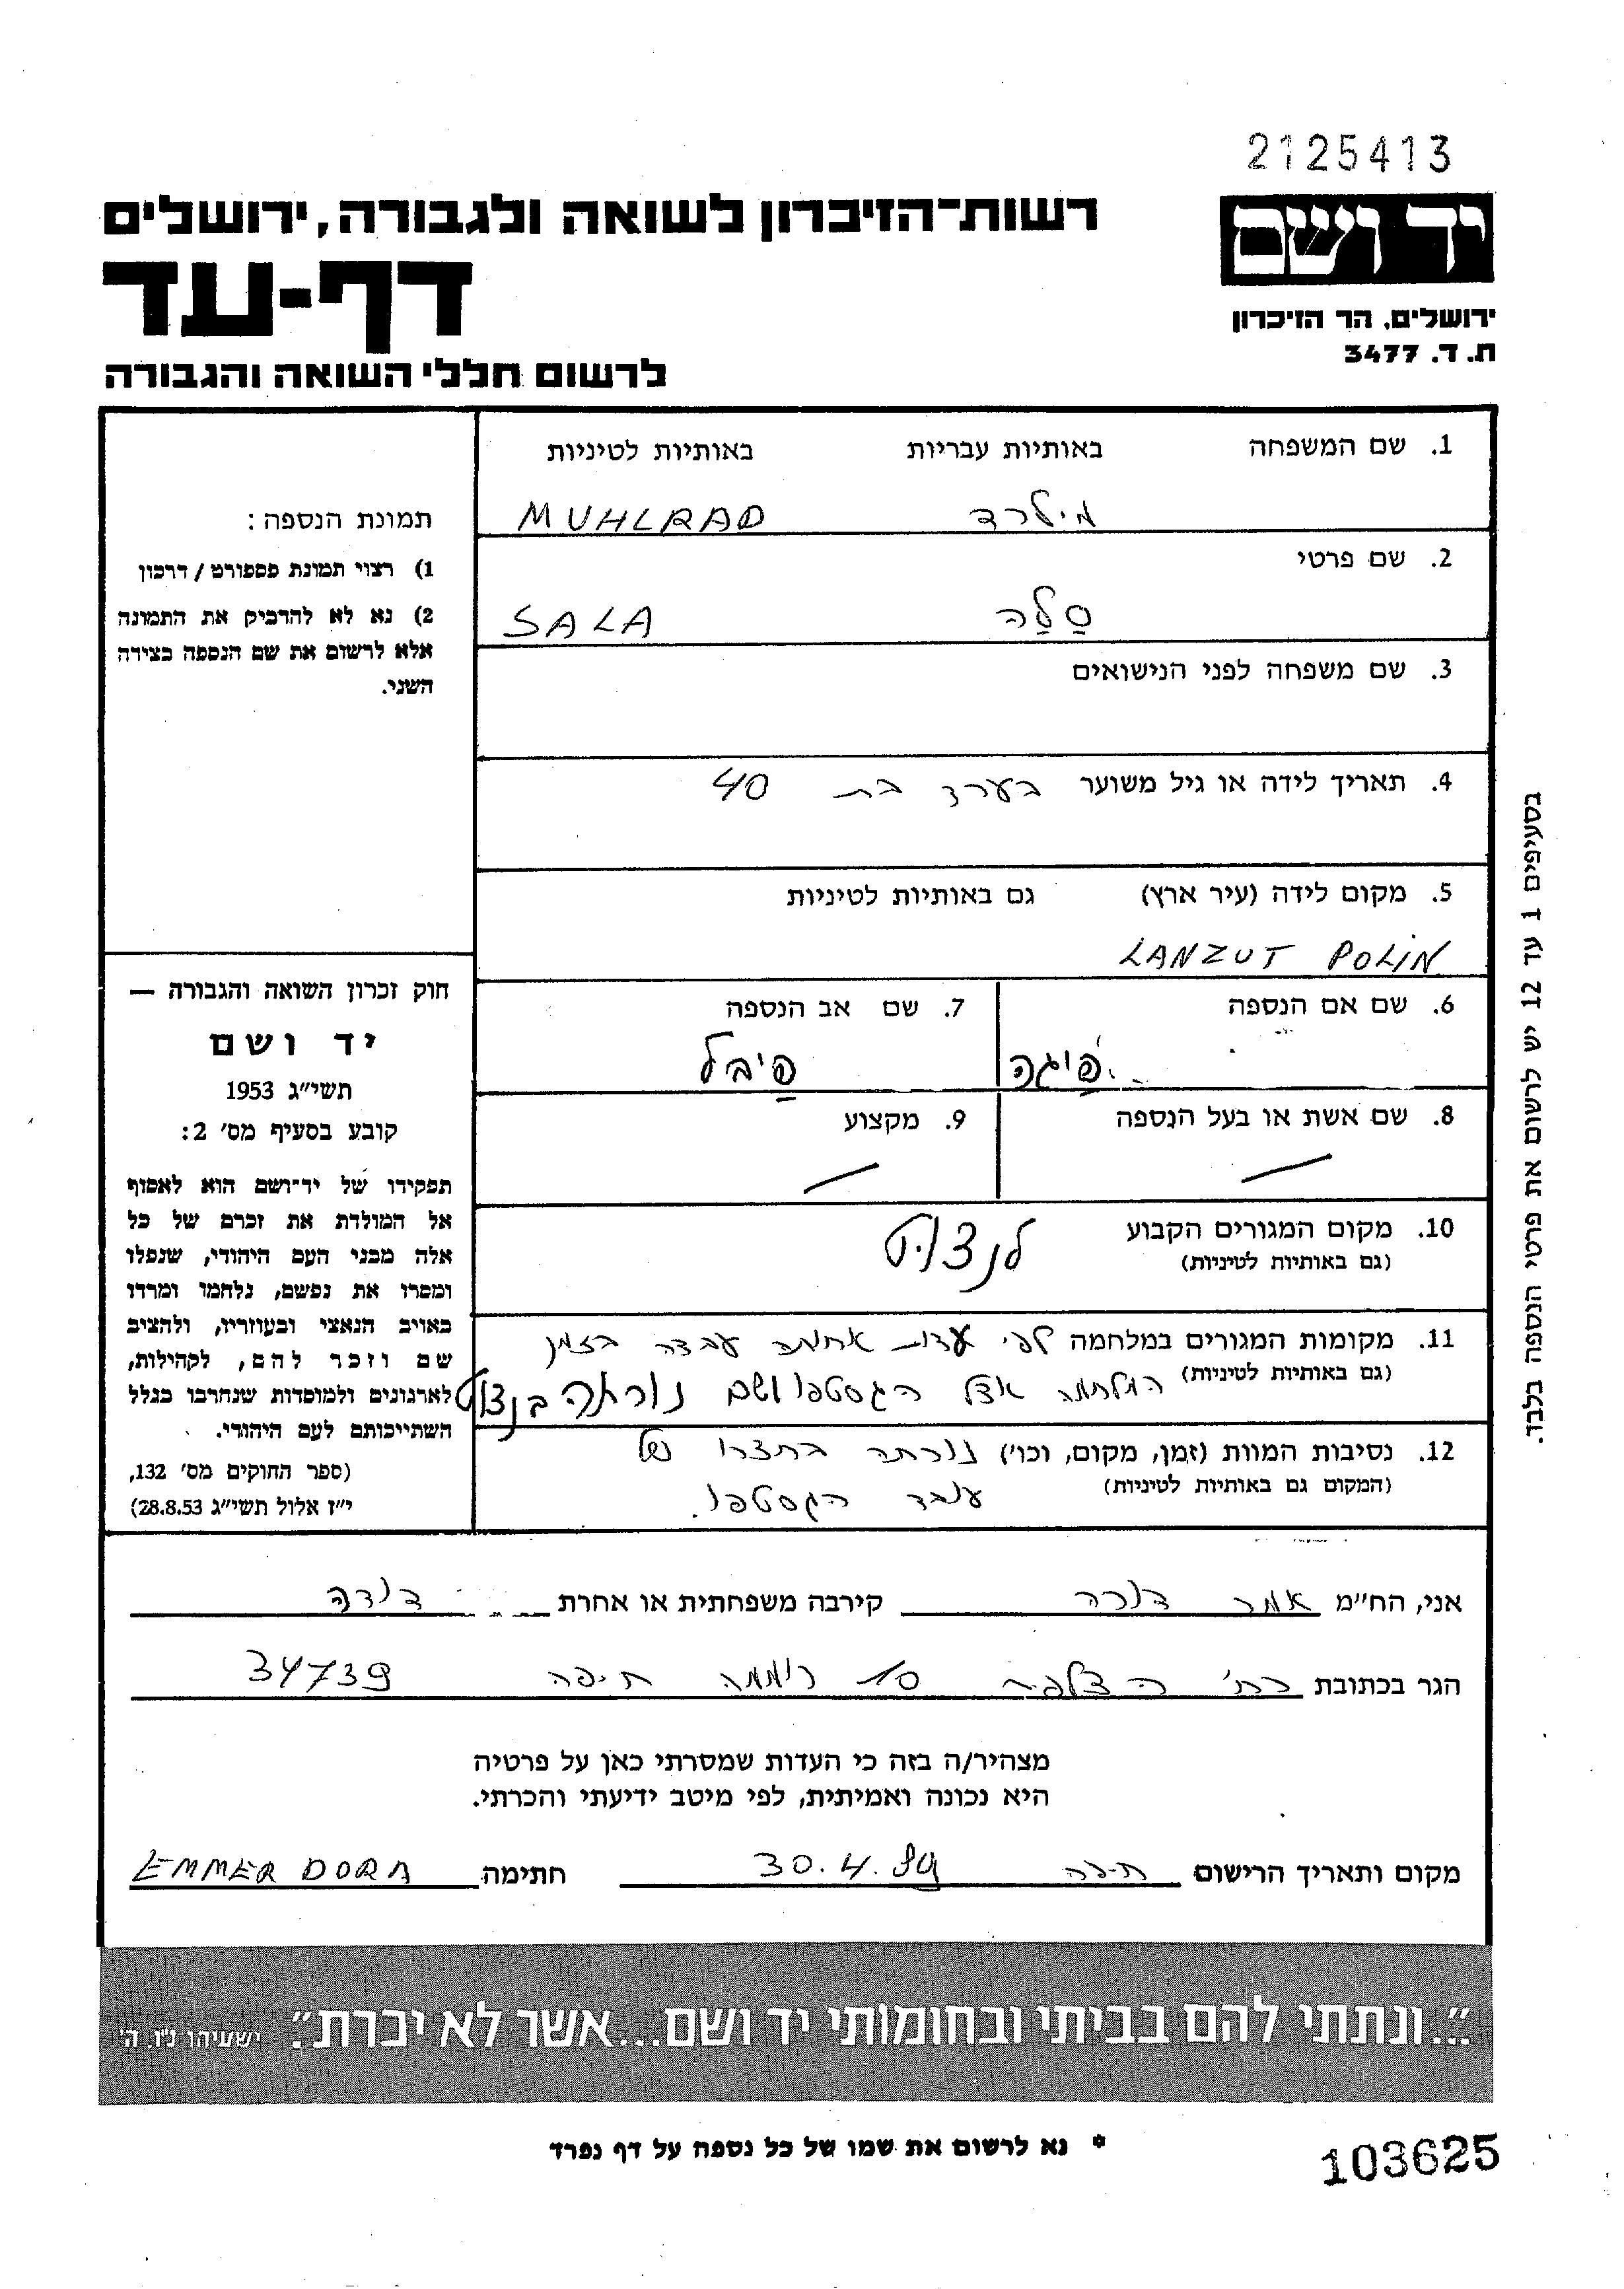 2125413
יד ושם
רשות־הזיכרון לשואה ולגבורה, ירושלים
דף-עד
ירושלים, הר הזיכרון
ת. ד. 3477
לרשום חללי השואה והגבורה
1. שם המשפחה באותיות עבריות באותיות לטיניות
מילרד MUHLRAD
2. שם פרטי
סַלַה SALA
3. שם משפחה לפני הנישואים
4. תאריך לידה או גיל משוער בערך בת 40
5. מקום לידה (עיר ארץ) גם באותיות לטיניות
LANZUT POLIN
6. שם אם הנספה
פיגה
7. שם אב הנספה
פיבל
8. שם אשת או בעל הנספה
9. מקצוע
10. מקום המגורים הקבוע
(גם באותיות לטיניות)
לנצוט
11. מקומות המגורים במלחמה לפי עדות אחותה עבדה בזמן
(גם באותיות לטיניות) המלחמה אצל הגסטפו ושם נורתה
12. נסיבות המוות (זמן, מקום, וכו׳) נורתה בחצרו של
(המקום גם באותיות לטיניות) עובד הגסטפו.
תמונת הנספה:
1) רצוי תמונת פספורט / דרכון
2) נא לא להדביק את התמונה
אלא לרשום את שם הנספה בצידה
השני.
חוק זכרון השואה והגבורה —
יד ושם
תשי״ג 1953
קובע בסעיף מס׳ 2:
תפקידו של יד־ושם הוא לאסוף
אל המולדת את זכרם של כל
אלה מבני העם היהודי, שנפלו
ומסרו את נפשם, נלחמו ומרדו
באויב הנאצי ובעוזריו, ולהציב
שם וזכר להם, לקהילות,
לארגונים ולמוסדות שנחרבו בגלל
השתייכותם לעם היהודי.
(ספר החוקים מס׳ 132,
י״ז אלול תשי״ג 28.8.53)
בסעיפים 1 עד 12 יש לרשום את פרטי הנספה בלבד.
אני, הח״מ אמר דורה קירבה משפחתית או אחרת דודה
הגר בכתובת רח׳ 10 רוממה חיפה 34739
מצהיר/ה בזה כי העדות שמסרתי כאן על פרטיה
היא נכונה ואמיתית, לפי מיטב ידיעתי והכרתי.
מקום ותאריך הרישום חיפה 30.4.89 חתימה EMMER DORA
״...ונתתי להם בביתי ובחומותי יד ושם...אשר לא יכרת״. ישעיהו נ״ו, ה׳
* נא לרשום את שמו של כל נספה על דף נפרד
103625